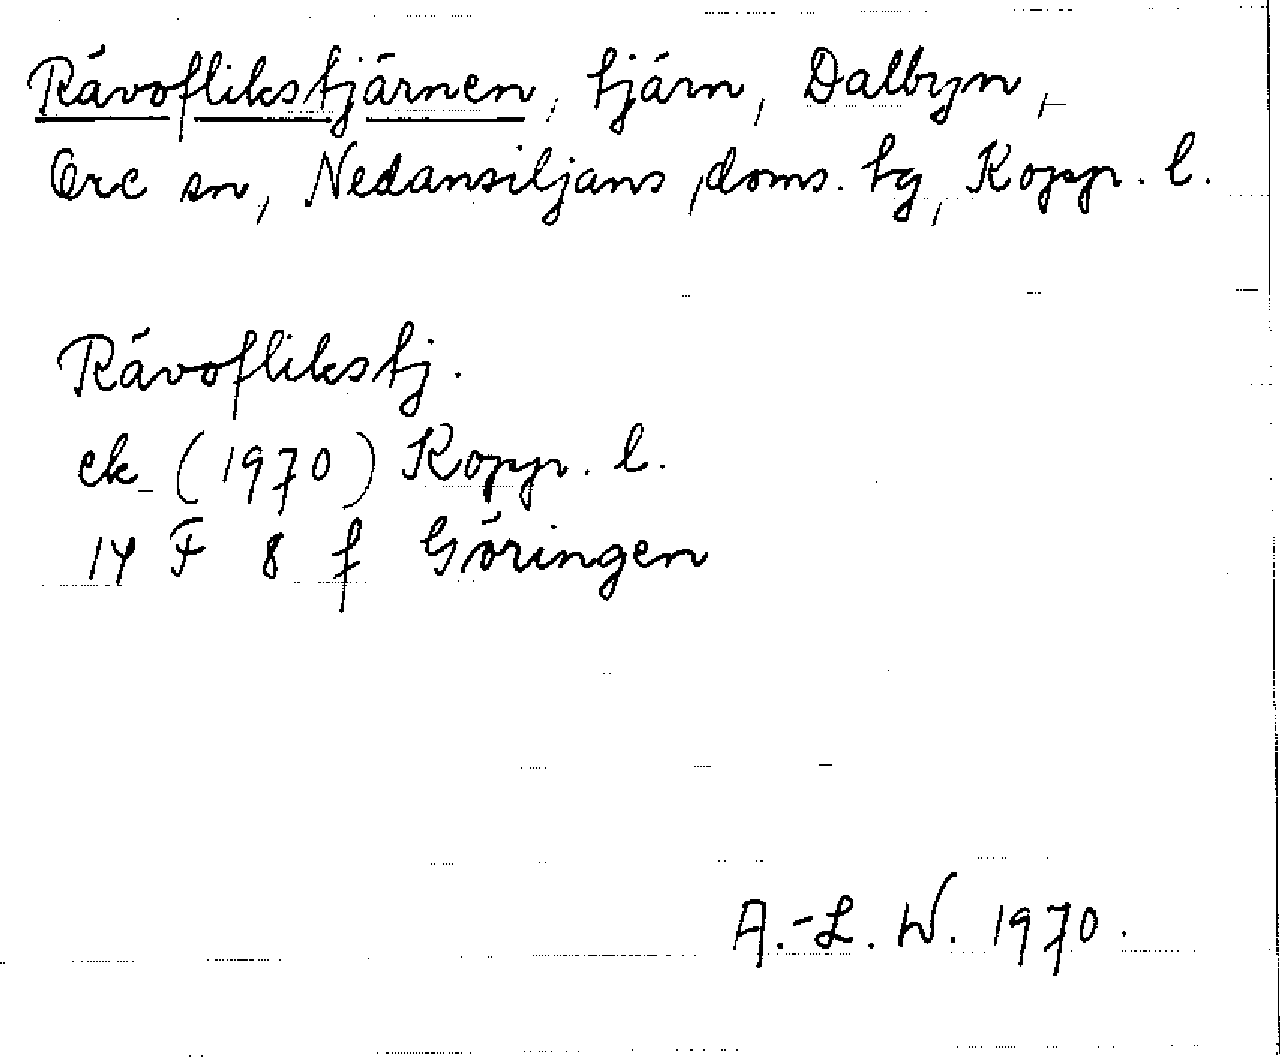 Rävoflikstjärnen, tjärn, Dalbyn,
Ore sn, Nedansiljans doms. tg, Kopp. l.
Rävoflikstj.
ek (1970) Kopp. l.
14 F 8 f Göringen
A.-L. W. 1970.